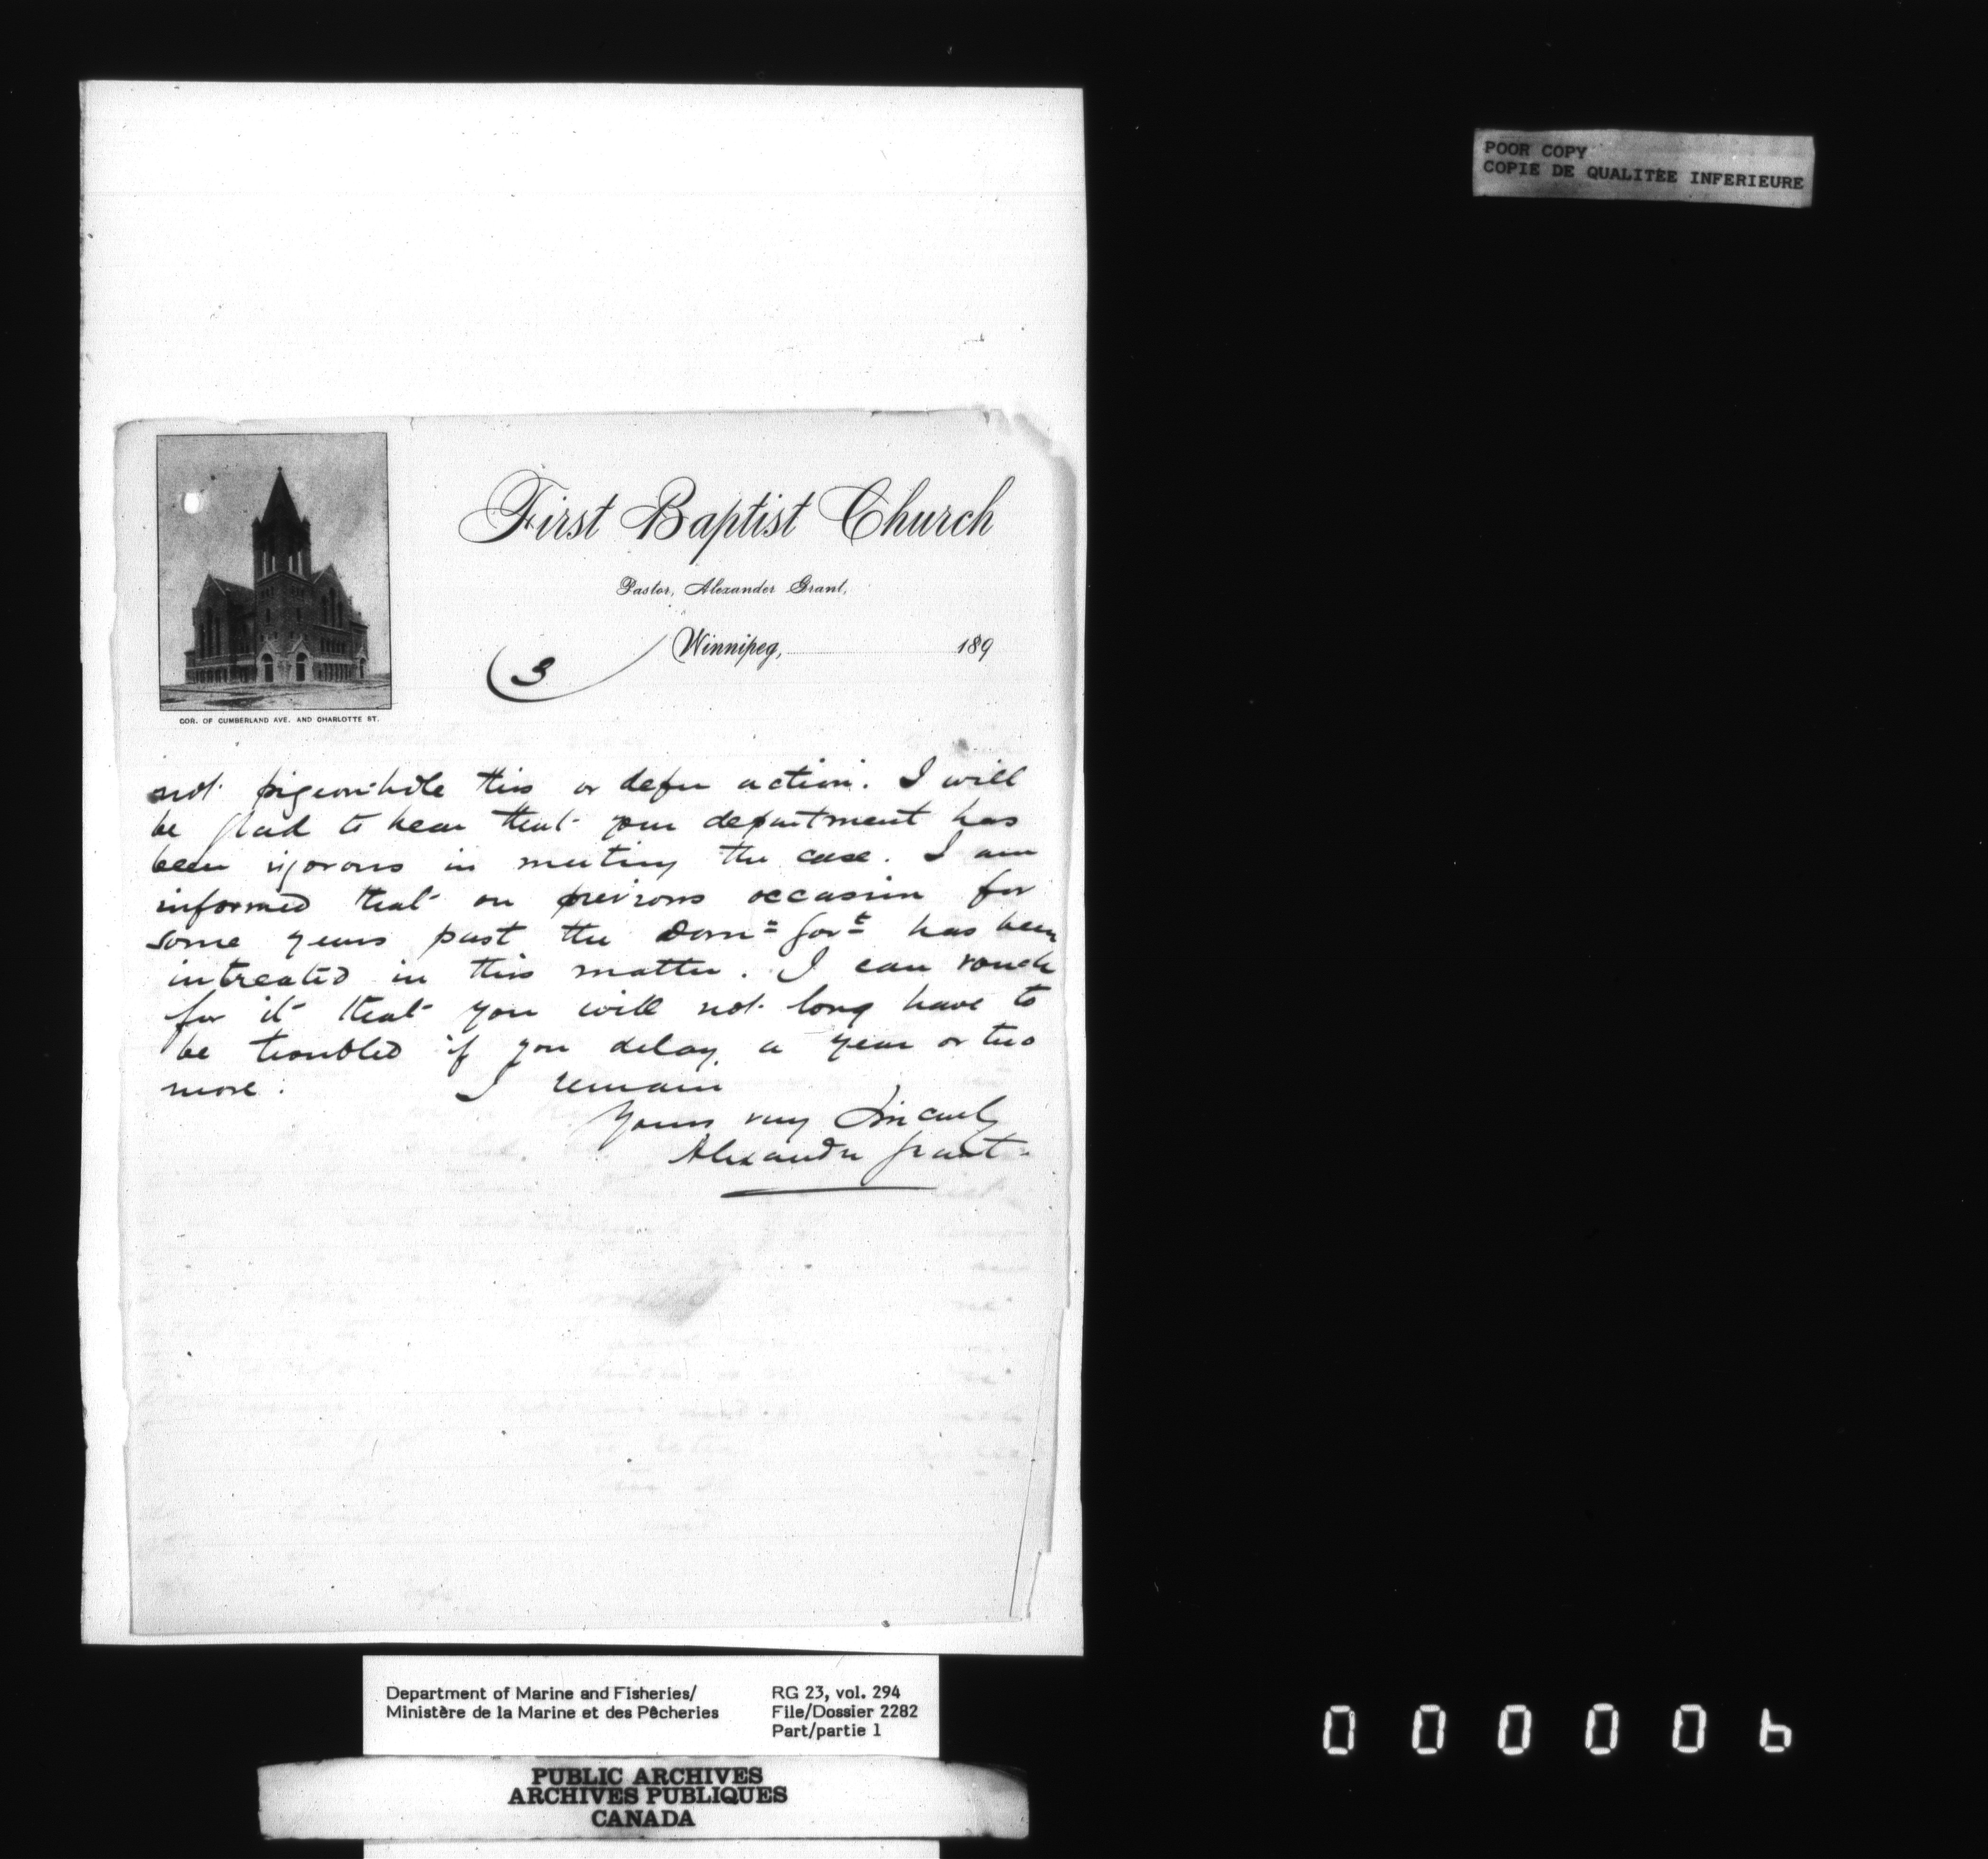 POOR COPY
COPIE DE QUALITÉE INFERIEURE
First Baptist Church
Pastor, Alexander Grant,
Winnipeg, 189
3
COR. OF CUMBERLAND AVE. AND CHARLOTTE ST.
not pigeon-hole this or defer action. I will
be glad to hear that your department has
been vigorous in meeting the case. I am
informed that on previous occasion for
some years past the Domn Govt has been
intreated in this matter. I can vouch
for it that you will not long have to
be troubled if you delay a year or two
more. I remain
Yours very Sincerely
Alexander Grant
Department of Marine and Fisheries/
Ministère de la Marine et des Pêcheries
RG 23, vol. 294
File/Dossier 2282
Part/partie 1
PUBLIC ARCHIVES
ARCHIVES PUBLIQUES
CANADA
000006